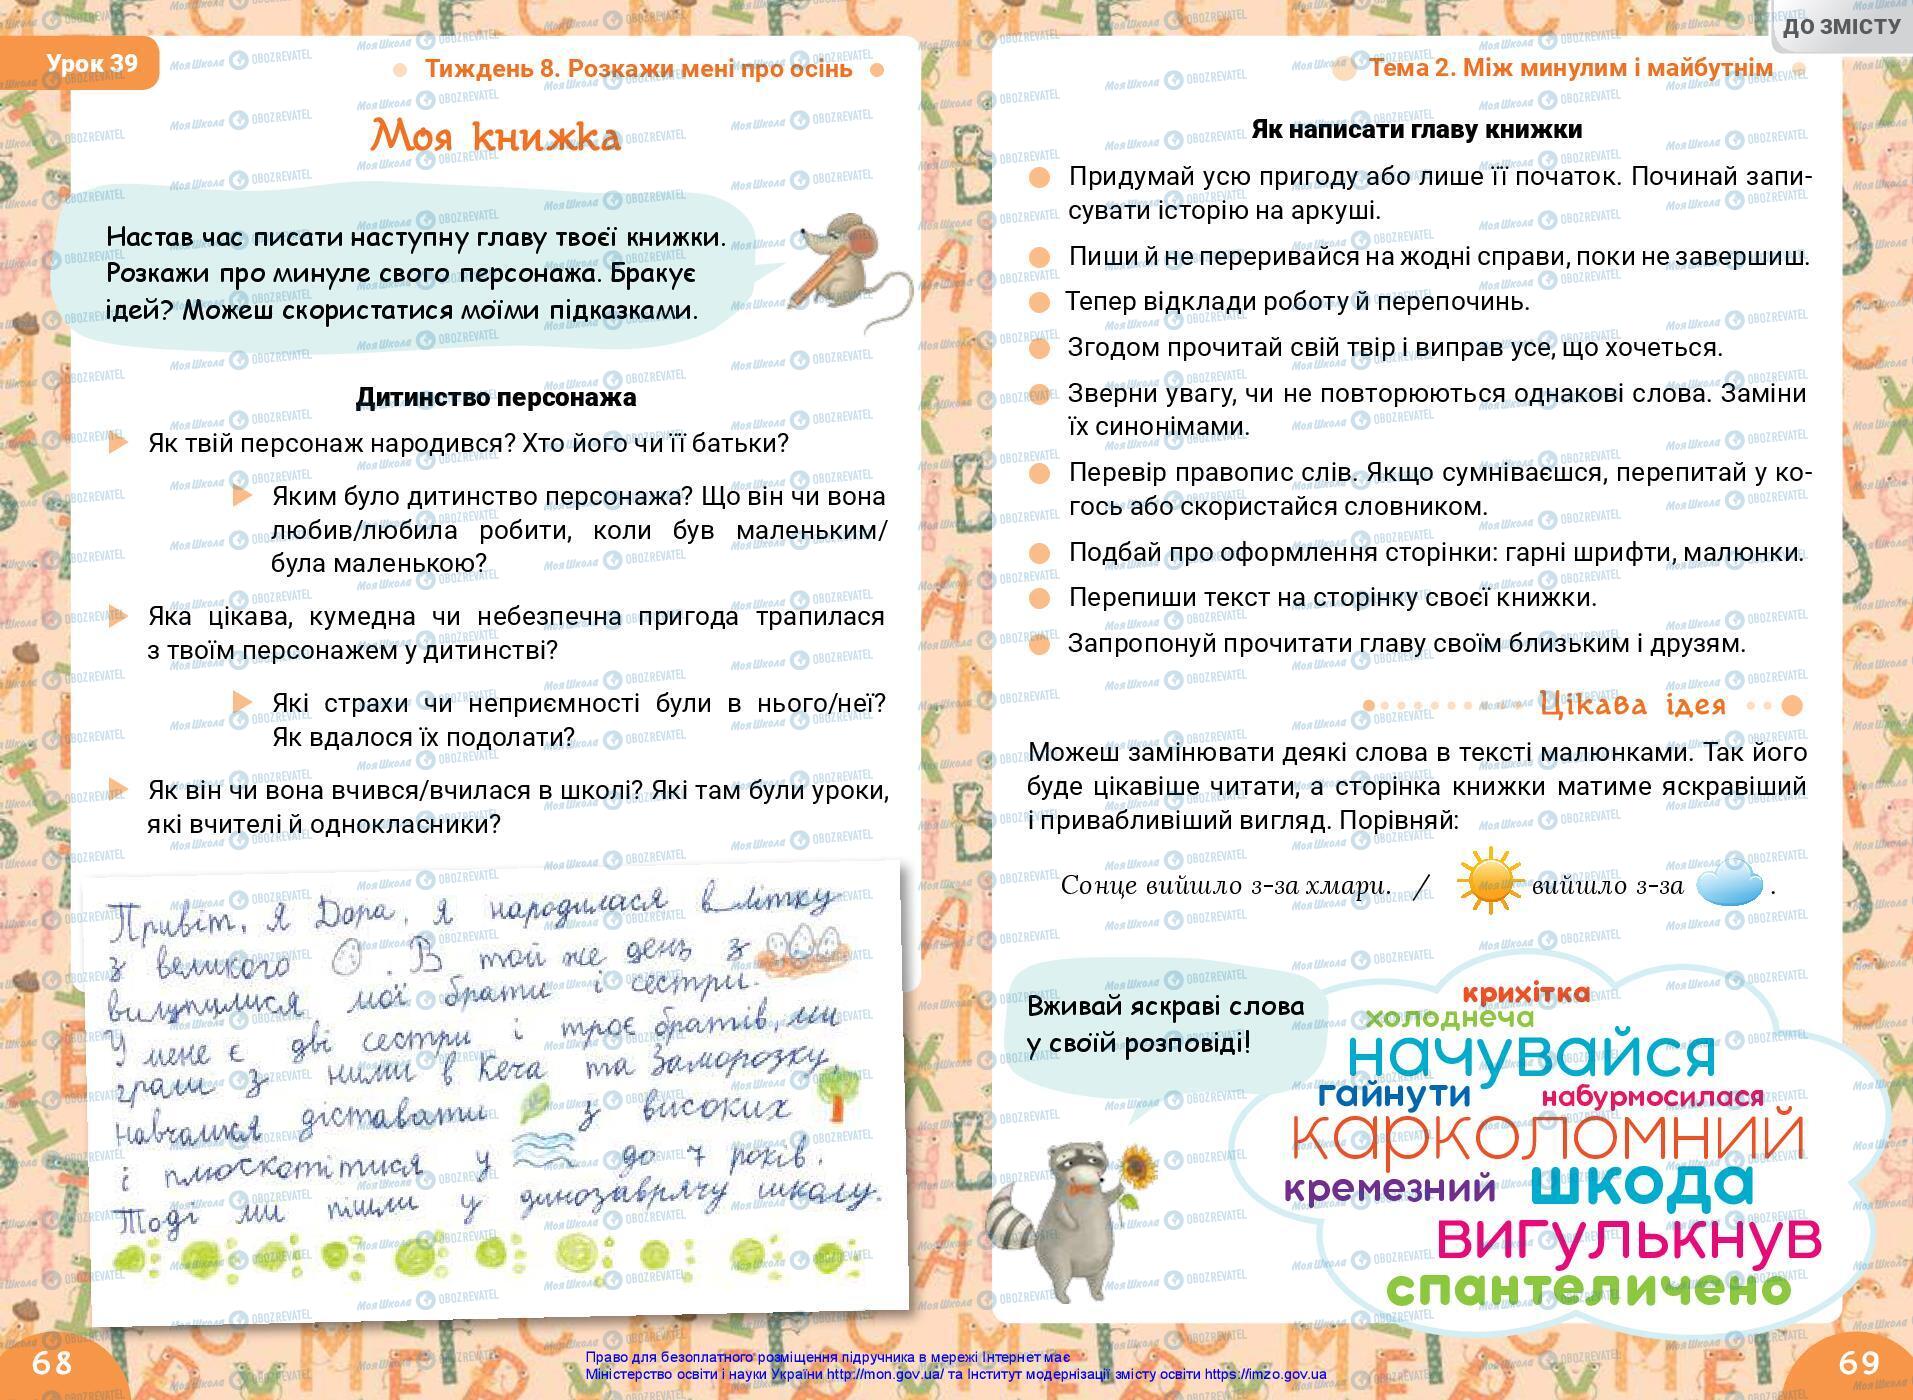 ДО ЗМІСТУ
Урок 39
Тиждень 8. Розкажи мені про осінь
Моя книжка
Настав час писати наступну главу твоєї книжки.
Розкажи про минуле свого персонажа. Бракує
ідей? Можеш скористатися моїми підказками.
Дитинство персонажа
Як твій персонаж народився? Хто його чи її батьки?
Яким було дитинство персонажа? Що він чи вона
любив/любила робити, коли був маленьким/
була маленькою?
Яка цікава, кумедна чи небезпечна пригода трапилася
з твоїм персонажем у дитинстві?
Які страхи чи неприємності були в нього/неї?
Як вдалося їх подолати?
Як він чи вона вчився/вчилася в школі? Які там були уроки,
які вчителі й однокласники?
Привіт, я Дора, я народилася влітку
з великого . В той же день з
вилупилися мої брати і сестри.
У мене є дві сестри і троє братів, ми
грали з ними в Кеча та Заморозку,
навчалися діставати з високих
і плюскотітися у до 7 років.
Тоді ми пішли у динозаврячу школу.
68
Тема 2. Між минулим і майбутнім
Як написати главу книжки
Придумай усю пригоду або лише її початок. Починай запи-
сувати історію на аркуші.
Пиши й не переривайся на жодні справи, поки не завершиш.
Тепер відклади роботу й перепочинь.
Згодом прочитай свій твір і виправ усе, що хочеться.
Зверни увагу, чи не повторюються однакові слова. Заміни
їх синонімами.
Перевір правопис слів. Якщо сумніваєшся, перепитай у ко-
гось або скористайся словником.
Подбай про оформлення сторінки: гарні шрифти, малюнки.
Перепиши текст на сторінку своєї книжки.
Запропонуй прочитати главу своїм близьким і друзям.
Цікава ідея
Можеш замінювати деякі слова в тексті малюнками. Так його
буде цікавіше читати, а сторінка книжки матиме яскравіший
і привабливіший вигляд. Порівняй:
Сонце вийшло з-за хмари. / вийшло з-за .
Вживай яскраві слова
у своїй розповіді!
крихітка
холоднеча
начувайся
гайнути набурмосилася
карколомний
кремезний шкода
вигулькнув
спантеличено
69
Право для безоплатного розміщення підручника в мережі Інтернет має
Міністерство освіти і науки України http://mon.gov.ua/ та Інститут модернізації змісту освіти https://imzo.gov.ua
МояШкола OBOZREVATEL